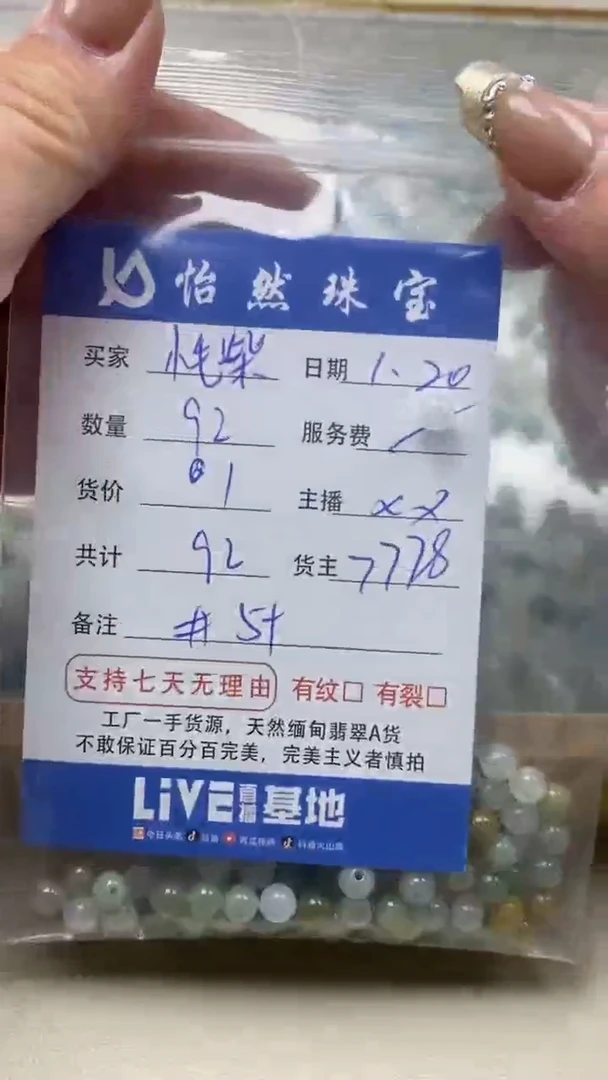 怡然珠宝
买家 日期 1.20
数量 92 服务费
货价 1 主播 xx
共计 92 货主 7728
备注 # 5t
支持七天无理由 有纹□ 有裂□
工厂一手货源，天然缅甸翡翠A货
不敢保证百分百完美，完美主义者慎拍
LiVE直播基地
今日头条